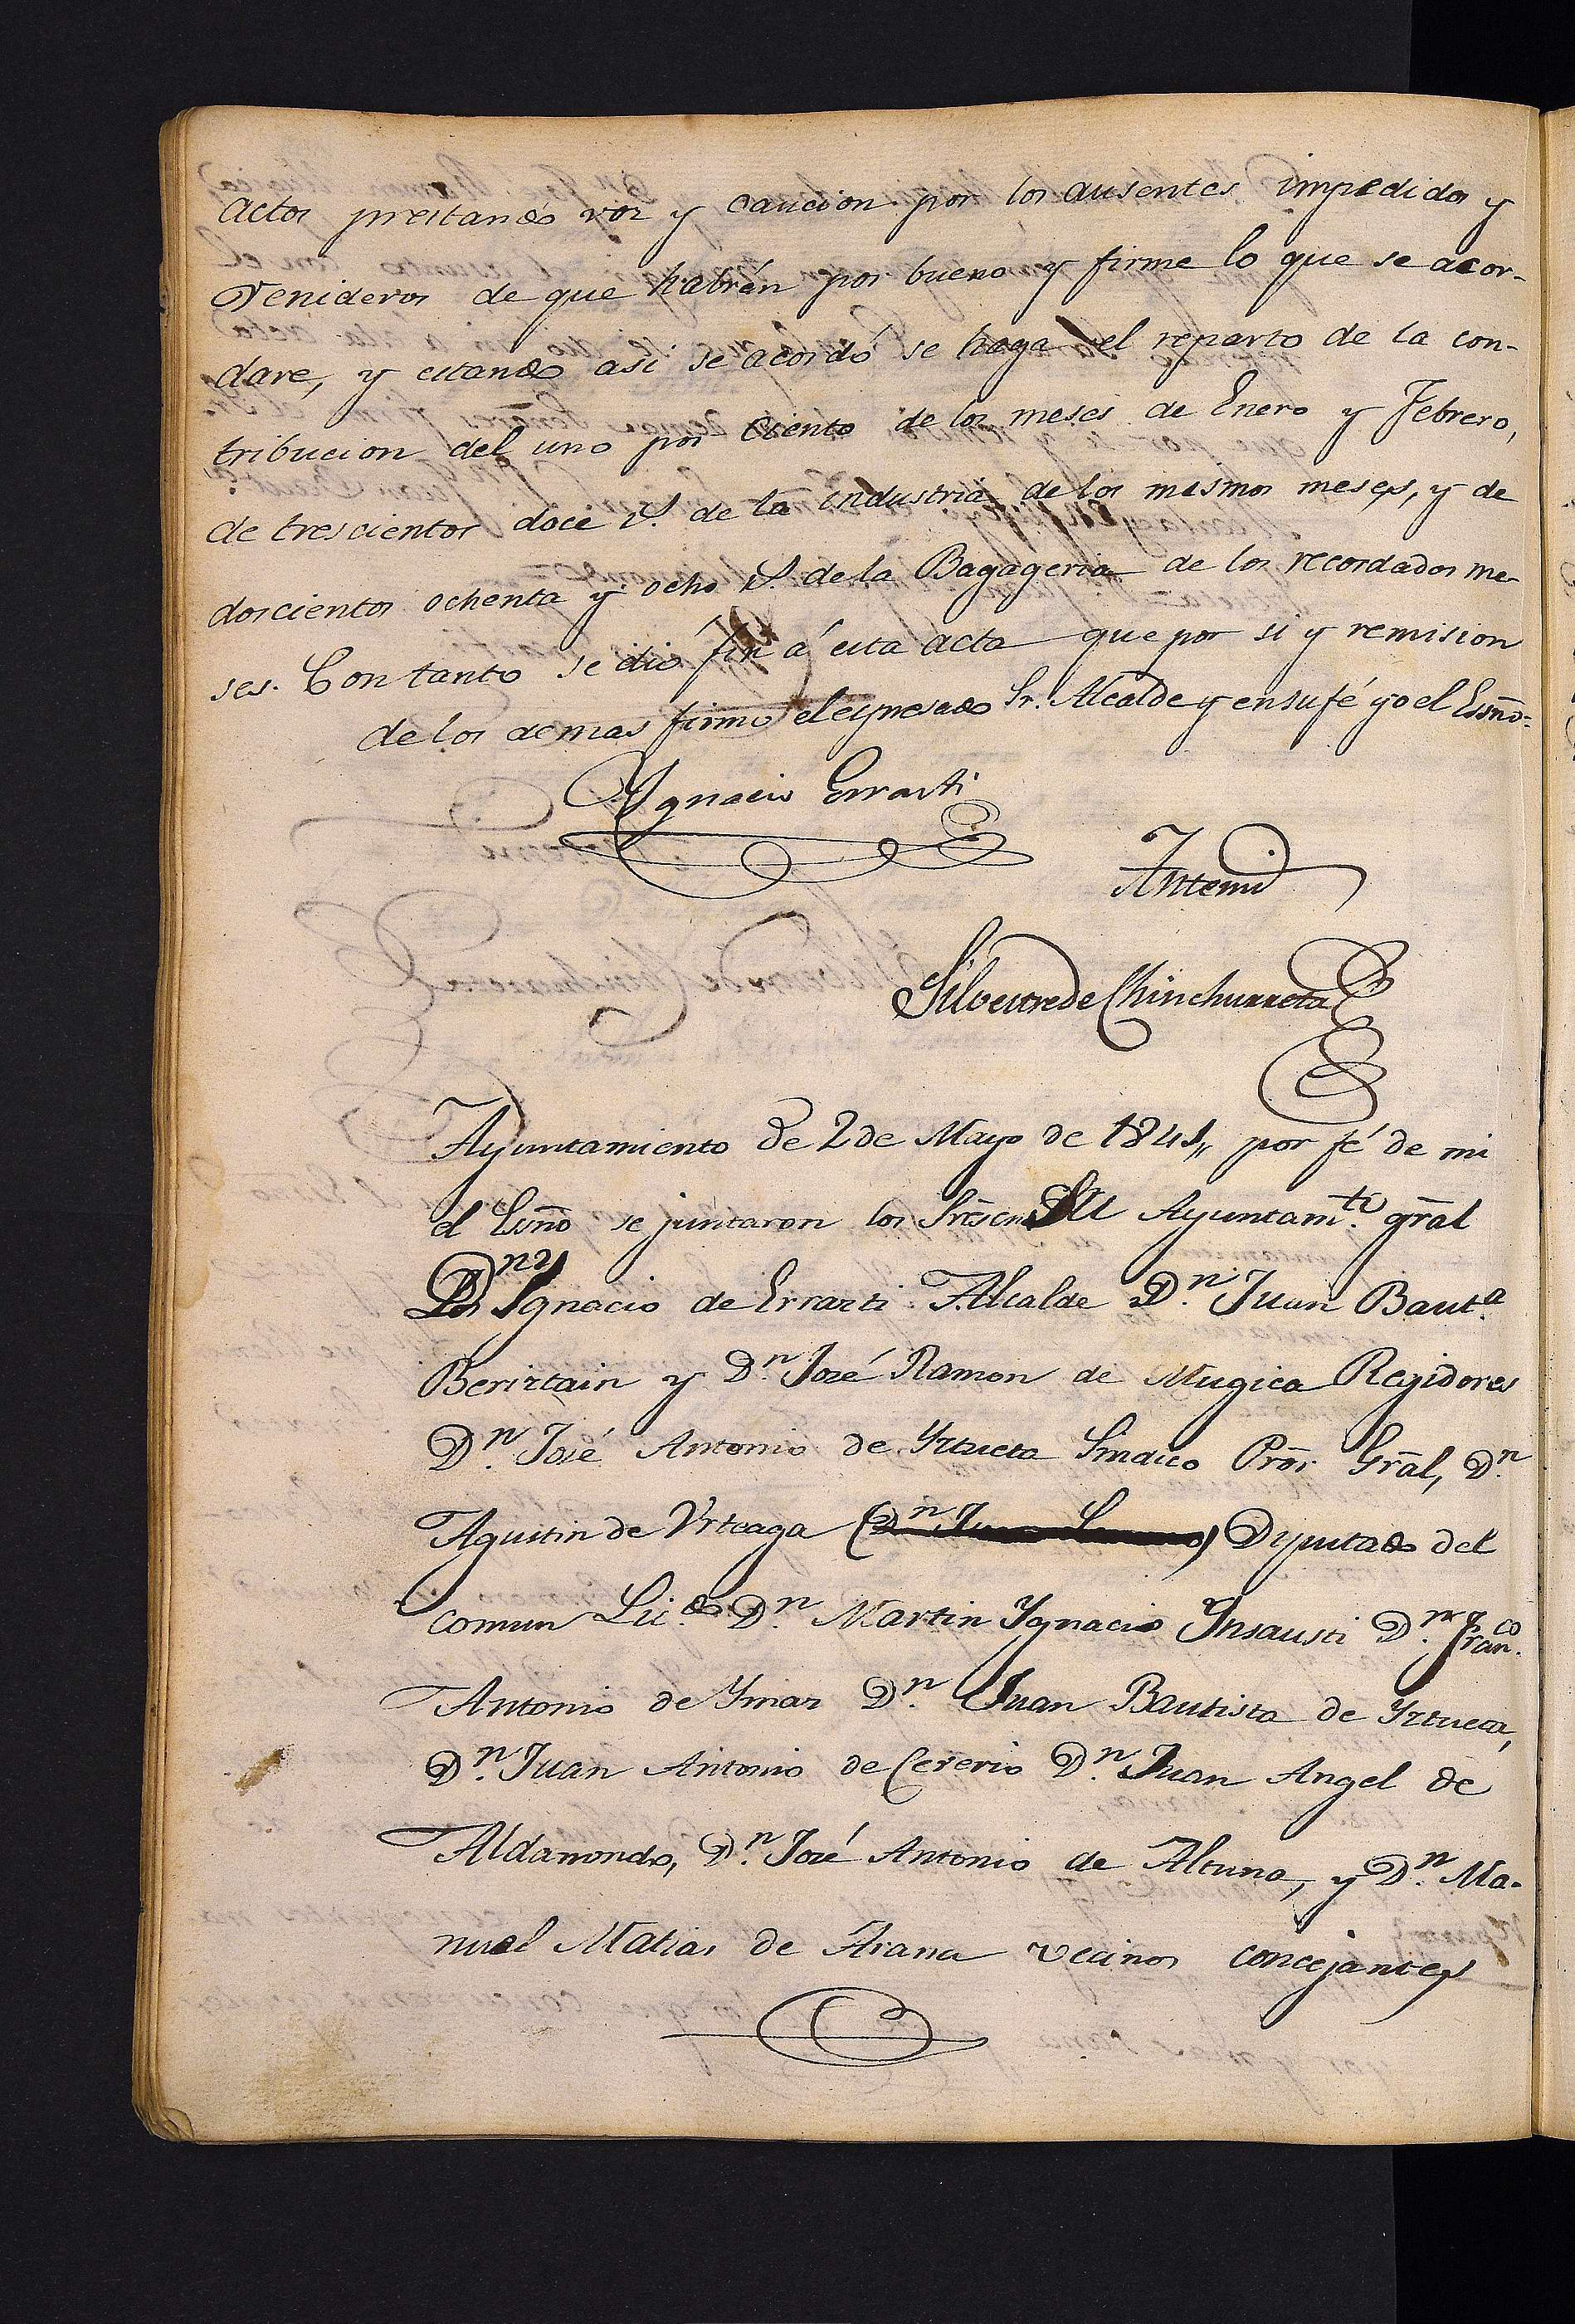 actos prestando voz y caucion por los ausentes impedidos y
Venideros de que habrán por bueno y firme lo que se acor-
dare, y estando asi se acordó se haga el reparto de la con-
tribucion del uno por Ciento de los meses de Enero y Febrero,
de trescientos doce rs. de la industria de los mismos meses, y de
doscientos ochenta y ocho rs. de la Bagageria de los recordados me-
ses. Con tanto se dió fin á esta acta que por si y remision
de los demas firmó el espresado Sr. Alcalde y en su fé yo el Esño=
Ygnacio Errasti
Antemi
Silvestre de Chinchurreta
Ayuntamiento de 2 de Mayo de 1841,, por fé de mi
el Esño se juntaron los Sres en Ayuntamto. gral
Dn Ignacio de Errazti Alcalde Dn. Juan Bauta.
Beriztain y Dn. José Ramon de Mugica Regidores
Dn. José Antonio de Yztueta Sindico Pror Gral, Dn.
Agustin de Urteaga (Dn Juan) Diputado del
comun Licdo. Dn. Martin Ygnacio Ynsausti Dn. Franco.
Antonio de Ymaz Dn. Juan Bautista de Yztueta,
Dn. Juan Antonio de Cererio Dn. Juan Angel de
Aldamondo, Dn. José Antonio de Altuna, y Dn. Ma-
nuel Matias de Arana vecinos concejantes